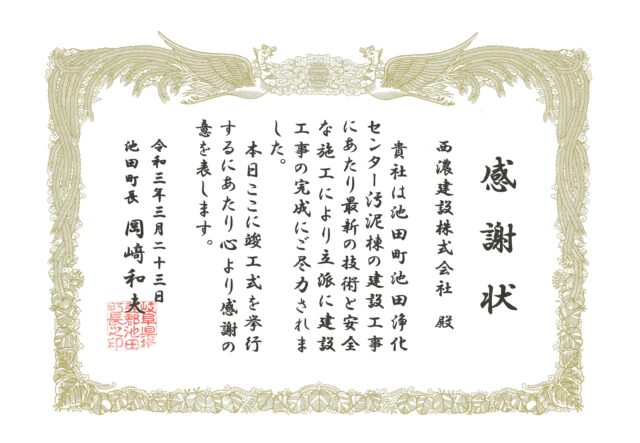 感謝状
西濃建設株式会社 殿
貴社は池田町池田浄化
センター汚泥棟の建設工事
にあたり最新の技術と安全
な施工により立派に建設
工事の完成にご尽力されま
した。
本日ここに竣工式を挙行
するにあたり心より感謝の
意を表します。
令和三年三月二十三日
池田町長 岡﨑和夫
岐阜県揖
斐郡池田
町長之印